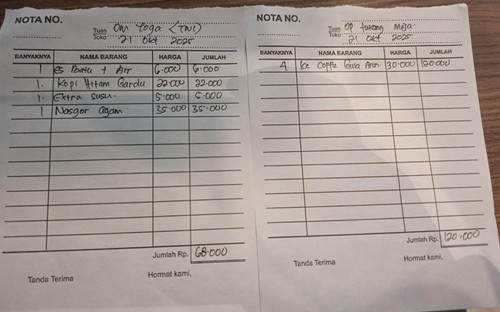 NOTA NO.
Tuan
Toko
Om Yoga (TNI)
21 Okt 2025
BANYAKNYA NAMA BARANG HARGA JUMLAH
1 es Batu + Air 6.000 6.000
1. Kopi Hitam Gardu 22.000 22.000
1. Extra Susu. 5.000 5.000
1 Nasgor Ayam 35.000 35.000
Jumlah Rp. 68.000
Tanda Terima Hormat kami,
NOTA NO.
Tuan
Toko
OP tukang Meja.
21 Okt 2025
BANYAKNYA NAMA BARANG HARGA JUMLAH
4 Ice Coffe Gula Aren 30.000 120.000
Jumlah Rp. 120.000
Tanda Terima Hormat kami,